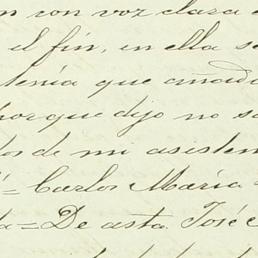 n con voz clara
el fin, en ella se
tenia que añadi
por que dijo no sa
dos de mi asisten
= Carlos Maria
a = De asta. José